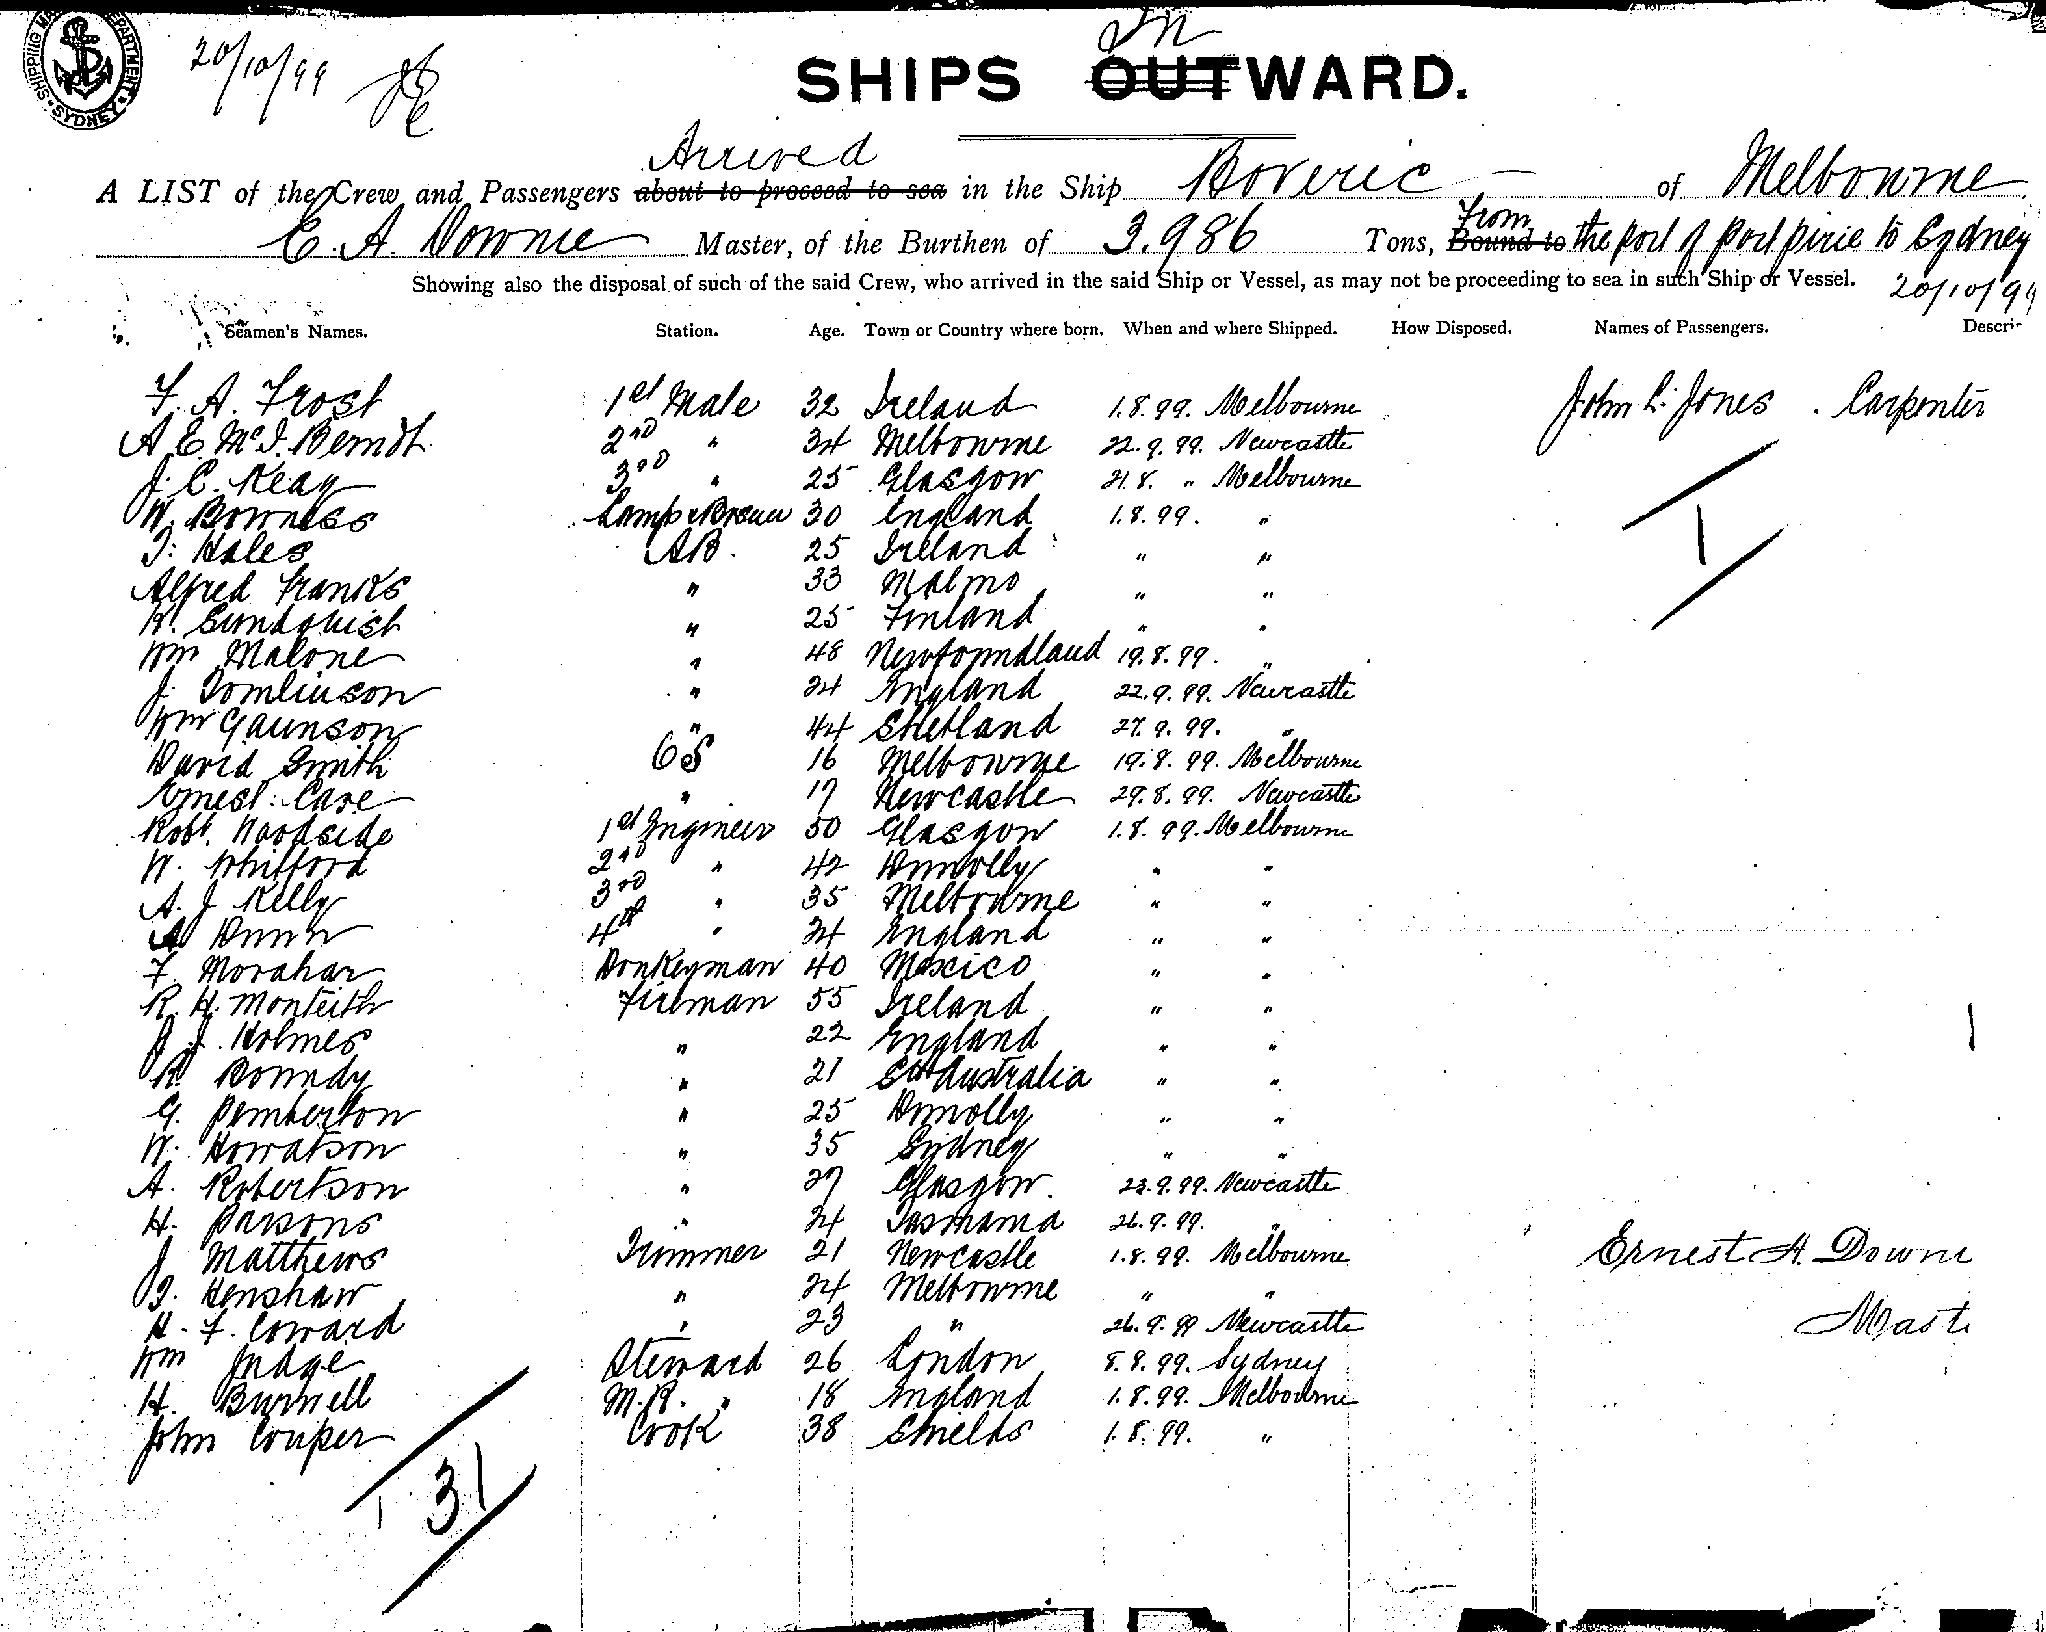 SHIPPING MA DEPARTMENT. SYDNEY
20/10/99
In
SHIPS OUTWARD.
Arrived
A LIST of the Crew and Passengers about to proceed to sea in the Ship Boveric of Melbourne
From
E. A. Downie Master, of the Burthen of 3.986 Tons, Bound to the port of Port pirie to Sydney
Showing also the disposal of such of the said Crew, who arrived in the said Ship or Vessel, as may not be proceeding to sea in such Ship or Vessel. 20/10/99
Seamen's Names. Station. Age. Town or Country where born. When and where Shipped. How Disposed. Names of Passengers. Descri-
F. A. Frost 1st Mate 32 Ireland 1.8.99. Melbourne John L. Jones . Carpenter
A E. McI. Berndt. 2nd " 34 Melbourne 22.9.99. Newcastle
J. C. Keay 3rd " 25 Glasgow 21.8. " Melbourne
W. Bowness Lamp 30 England 1.8.99. "
T. Hales AB. 25 Ireland " "
Alfred Franks " 33 Malmo " "
K. Sundquist " 25 Finland " "
Wm Malone " 48 Newfoundland 19.8.99. "
J. Tomlinson " 24 England 22.9.99. Newcastle
Wm Gaunson " 44 Shetland 27.9.99. "
David Smith OS 16 Melbourne 19.8.99. Melbourne
Ernest Cave " 17 Newcastle 29.8.99. Newcastle
Robt. Woodside 1st Engineer 50 Glasgow 1.8.99. Melbourne
W. Whifford 2nd " 42 Dunolly " "
A. J Kelly 3rd " 35 Melbourne " "
A Dunn 4th " 24 England " "
F. Morahar Donkeyman 40 Mexico " "
R. H. Monteith Fireman 55 Ireland " "
J. J. Holmes " 22 England " "
R. Boundy " 21 Sth Australia " "
G. Pemberton " 25 Dunolly " "
W. Howatson " 35 Sydney " "
A. Robertson " 27 Glasgow. 23.9.99. Newcastle
H. Parsons " 24 Tasmania 26.9.99. "
J Matthews Trimmer 21 Newcastle 1.8.99. Melbourne Ernest A. Downi
T. Henshaw " 24 Melbourne " "
H. F. Coward " 23 " 26.9.99 Newcastle Maste
Wm Judge Steward 26 London 8.8.99. Sydney
H. Burnell M.R. " 18 England 1.8.99. Melbourne
John Couper Cook 38 Shields 1.8.99. "
1
31